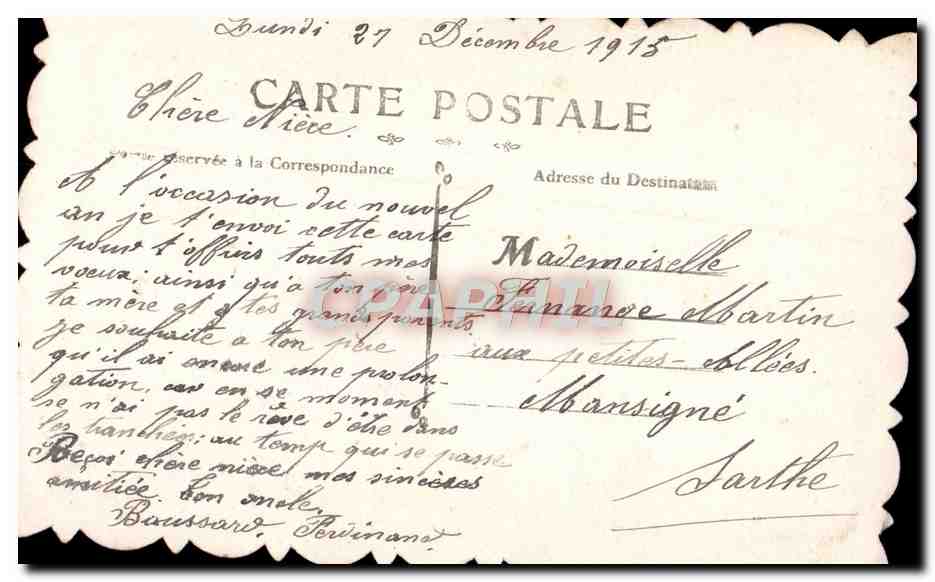 Lundi 27 Décembre 1915
CARTE POSTALE
Chère Nièce.
réservée à la Correspondance
Adresse du Destinataire
A l'occasion du nouvel
an je t'envoi cette carte
pour t'offrirs touts mes
voeux; ainsi qu'a ton père
ta mère et a tes grands parents,
je souhaite a ton père
qu'il ai encore une prolon-
gation, car en se moment
se n'ai pas le rêve d'être dans
les tranchées; au temp qui se passe
Reçois chère nièce mes sincères
amitiée. ton oncle,
Baussard, Ferdinand,
Mademoiselle
Fernande Martin
aux petites-Allées.
Mansigné
Sarthe
CPAPHIL